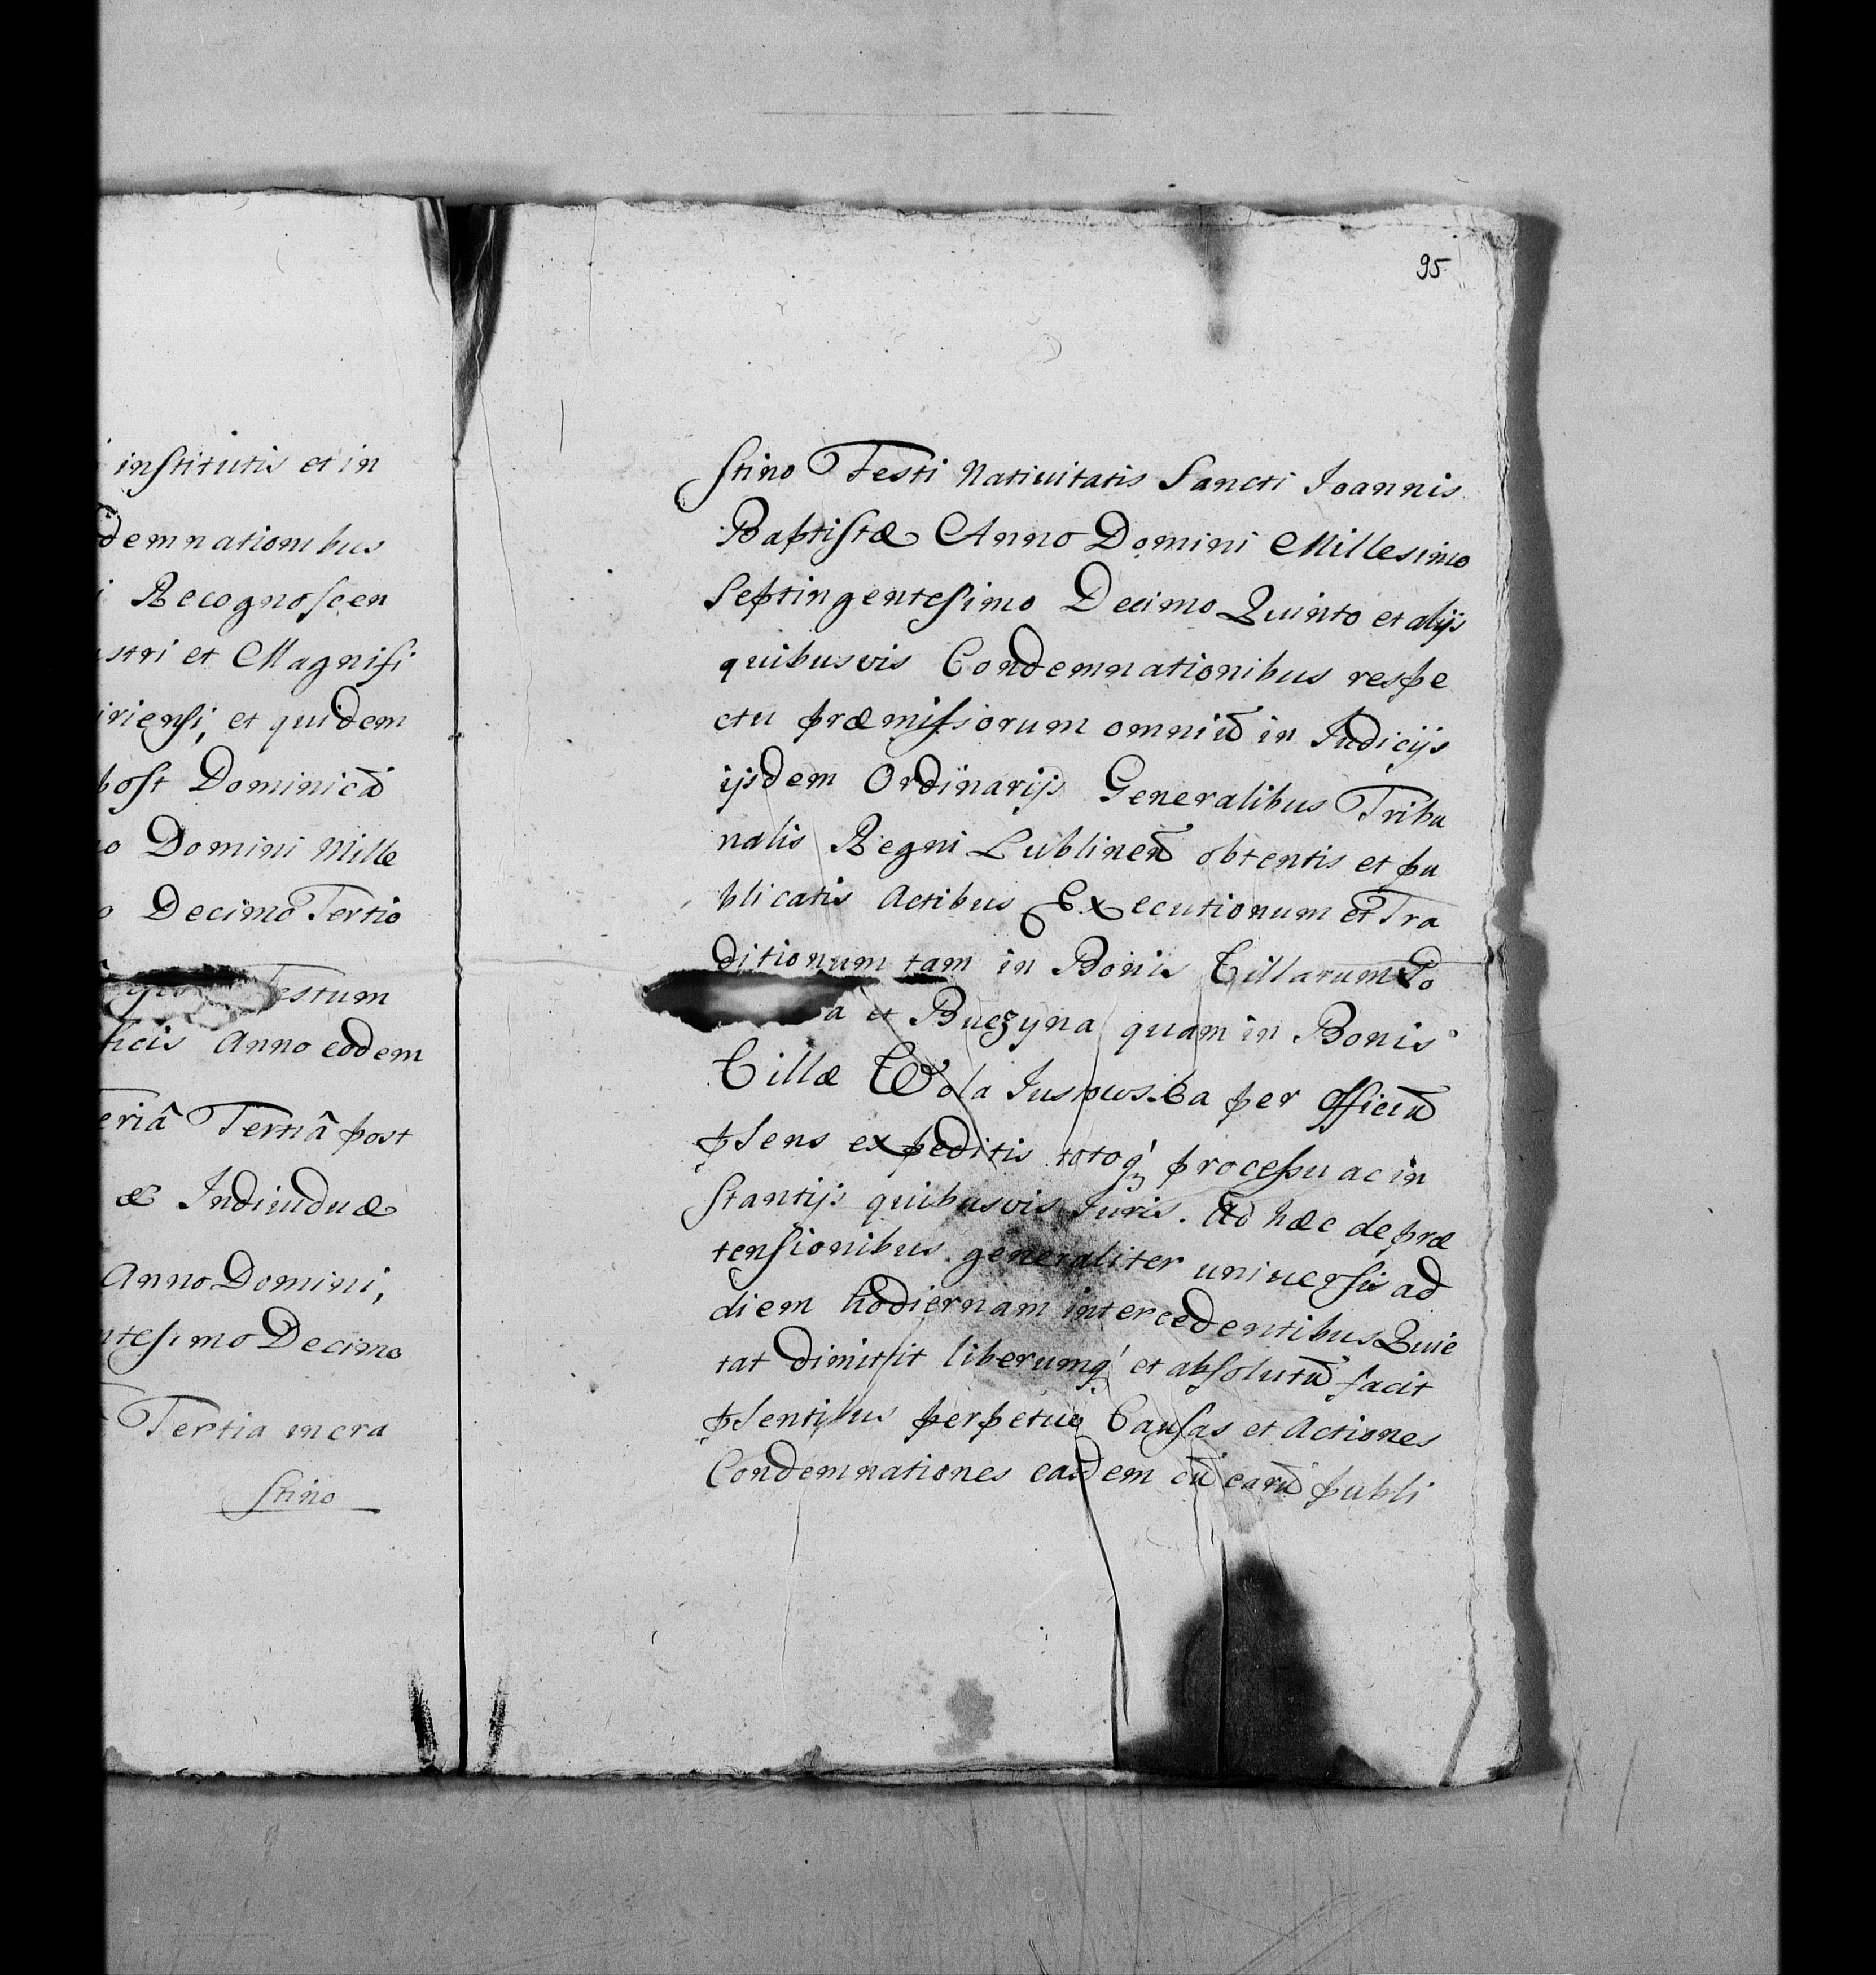 institutis et in
demnationibus
i Recognoscen
stri et Magnifi
iriensi, et quidem
post Dominicā
o Domini Mille
o Decimo Tertio
Festum
licis Anno eodem
eriâ Tertiâ post
æ Indiuiduæ
Anno Domini,
ntesimo Decimo
Tertia in cra
stino
95
stino Festi Natiuitatis Sancti Joannis
Baptistæ Anno Domini Millesimo
Septingentesimo Decimo Quinto et alijs
quibusvis Condemnationibus respe
ctu præmissorum omniū in Judicijs
ijsdem Ordinarijs Generalibus Tribu
nalis Regni Lublineñ obtentis et pu
blicatis Actibus Executionum et Tra
ditionum tam in Bonis Villarum Po
a et Buczyna quam in Bonis
Villæ Wola Justowska per Officiū
pſens expeditis totoq; processu ac in
stantijs quibusvis Juris. Ad hæc de præ
tensionibus generaliter uniuersis ad
diem hodiernam intercedentibus Quie
tat dimittit liberumq; et absolutū facit
pſentibus perpetue Causas et Actiones
Condemnationes easdem cū earū publi